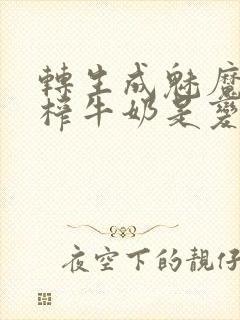 轉生成魅魔
榨牛奶是變
夜空下的靚仔